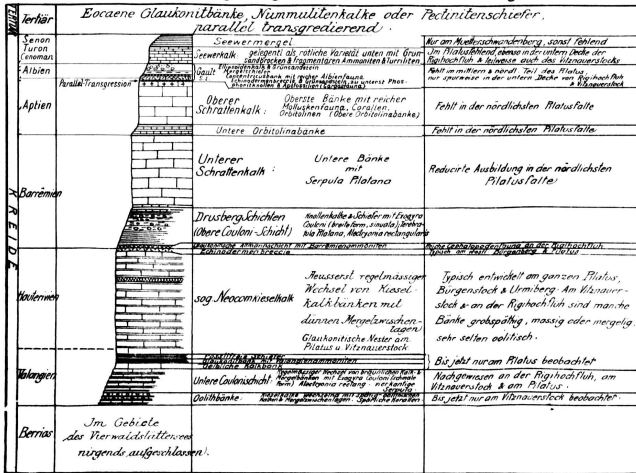 Tertiär
Eocaene Glaukonitbänke, Nummulitenkalke oder Pectinitenschiefer,
parallel transgredierend.
KREIDE
Senon
Turon
Cenoman
Seewermergel
Nur am Muetterschwandenberg, sonst fehlend
Seewerkalk
gelegentl. als rötliche Varietät unten mit Grün-
Sandbrocken & fragmentären Ammoniten & Turriliten.
Im Pilatus fehlend, ebenso in der untern Decke der
Rigihochfluh & teilweise auch des Vitznauerstocks
Albien
Gault
s.l.
Ellipsoidenkalk & Grünsandstein
Mergelschiefer
Concentricusbank mit reicher Albienfauna
Echinodermenbreccie & Grünsandstein, zu unterst Phos-
phoritknollen &
Fehlt im mittlern & nördl. Teil des Pilatus,
nur spurweise in der untern Decke von Rigihochfluh
& Vitznauerstock
Parallel-Transgression
Aptien
Oberer
Schrattenkalk:
Oberste Bänke mit reicher
Molluskenfauna, Corallen,
Orbitolinen (Obere Orbitolinabänke)
Fehlt in der nördlichsten Pilatusfalte
Untere Orbitolinabänke
Fehlt in der nördlichsten Pilatusfalte
Barrêmien
Unterer
Schrattenkalk:
Untere Bänke
mit
Serpula Pilatana
Reducirte Ausbildung in der nördlichsten
Pilatusfalte
Drusberg Schichten
(Obere Couloni-Schicht)
Knollenkalke & Schiefer mit Exogyra
Couloni (breite form, sinuata), Terebra-
tula Pilatana, Alectryonia rectangularis
mit Barrêmienammoniten
Reiche Cephalopodenfauna an der Rigihochfluh.
Echinodermenbreccie
Typisch am westl. Bürgenberg & Pilatus
Hauterivien
sog. Neocomkieselkalk
Aeusserst regelmässiger
Wechsel von Kiesel-
kalkbänken mit
dünnen Mergelzwischen-
lagen)
Glaukonitische Nester am
Pilatus u Vitznauerstock
Typisch entwickelt am ganzen Pilatus,
Bürgenstock & Urmiberg. Am Vitznauer-
stock & an der Rigihochfluh sind manche
Bänke grobspäthig, massig oder mergelig,
sehr selten oolitisch.
Valangien
Fossilfreie Schiefer
Glaukonitbank mit Valangienammoniten
Gelbliche Kalkbank
Bis jetzt nur am Pilatus beobachtet
Untere Coulonischicht:
Regelmässiger Wechsel von bräunlichen Kalk- &
Mergelbänken mit Exogyra Couloni (schmale
form) Alectryonia rectang.
Serpula.
Nachgewiesen an der Rigihochfluh, am
Vitznauerstock & am Pilatus.
Oolithbänke:
Kieselkalke wechselnd mit spätig-oolithischen
Kalken & Mergelzwischenlagen. Spärliche Korallen
Bis jetzt nur am Vitznauerstock beobachtet.
Berrias
Im Gebiete
des Vierwaldstättersees
nirgends aufgeschlossen).